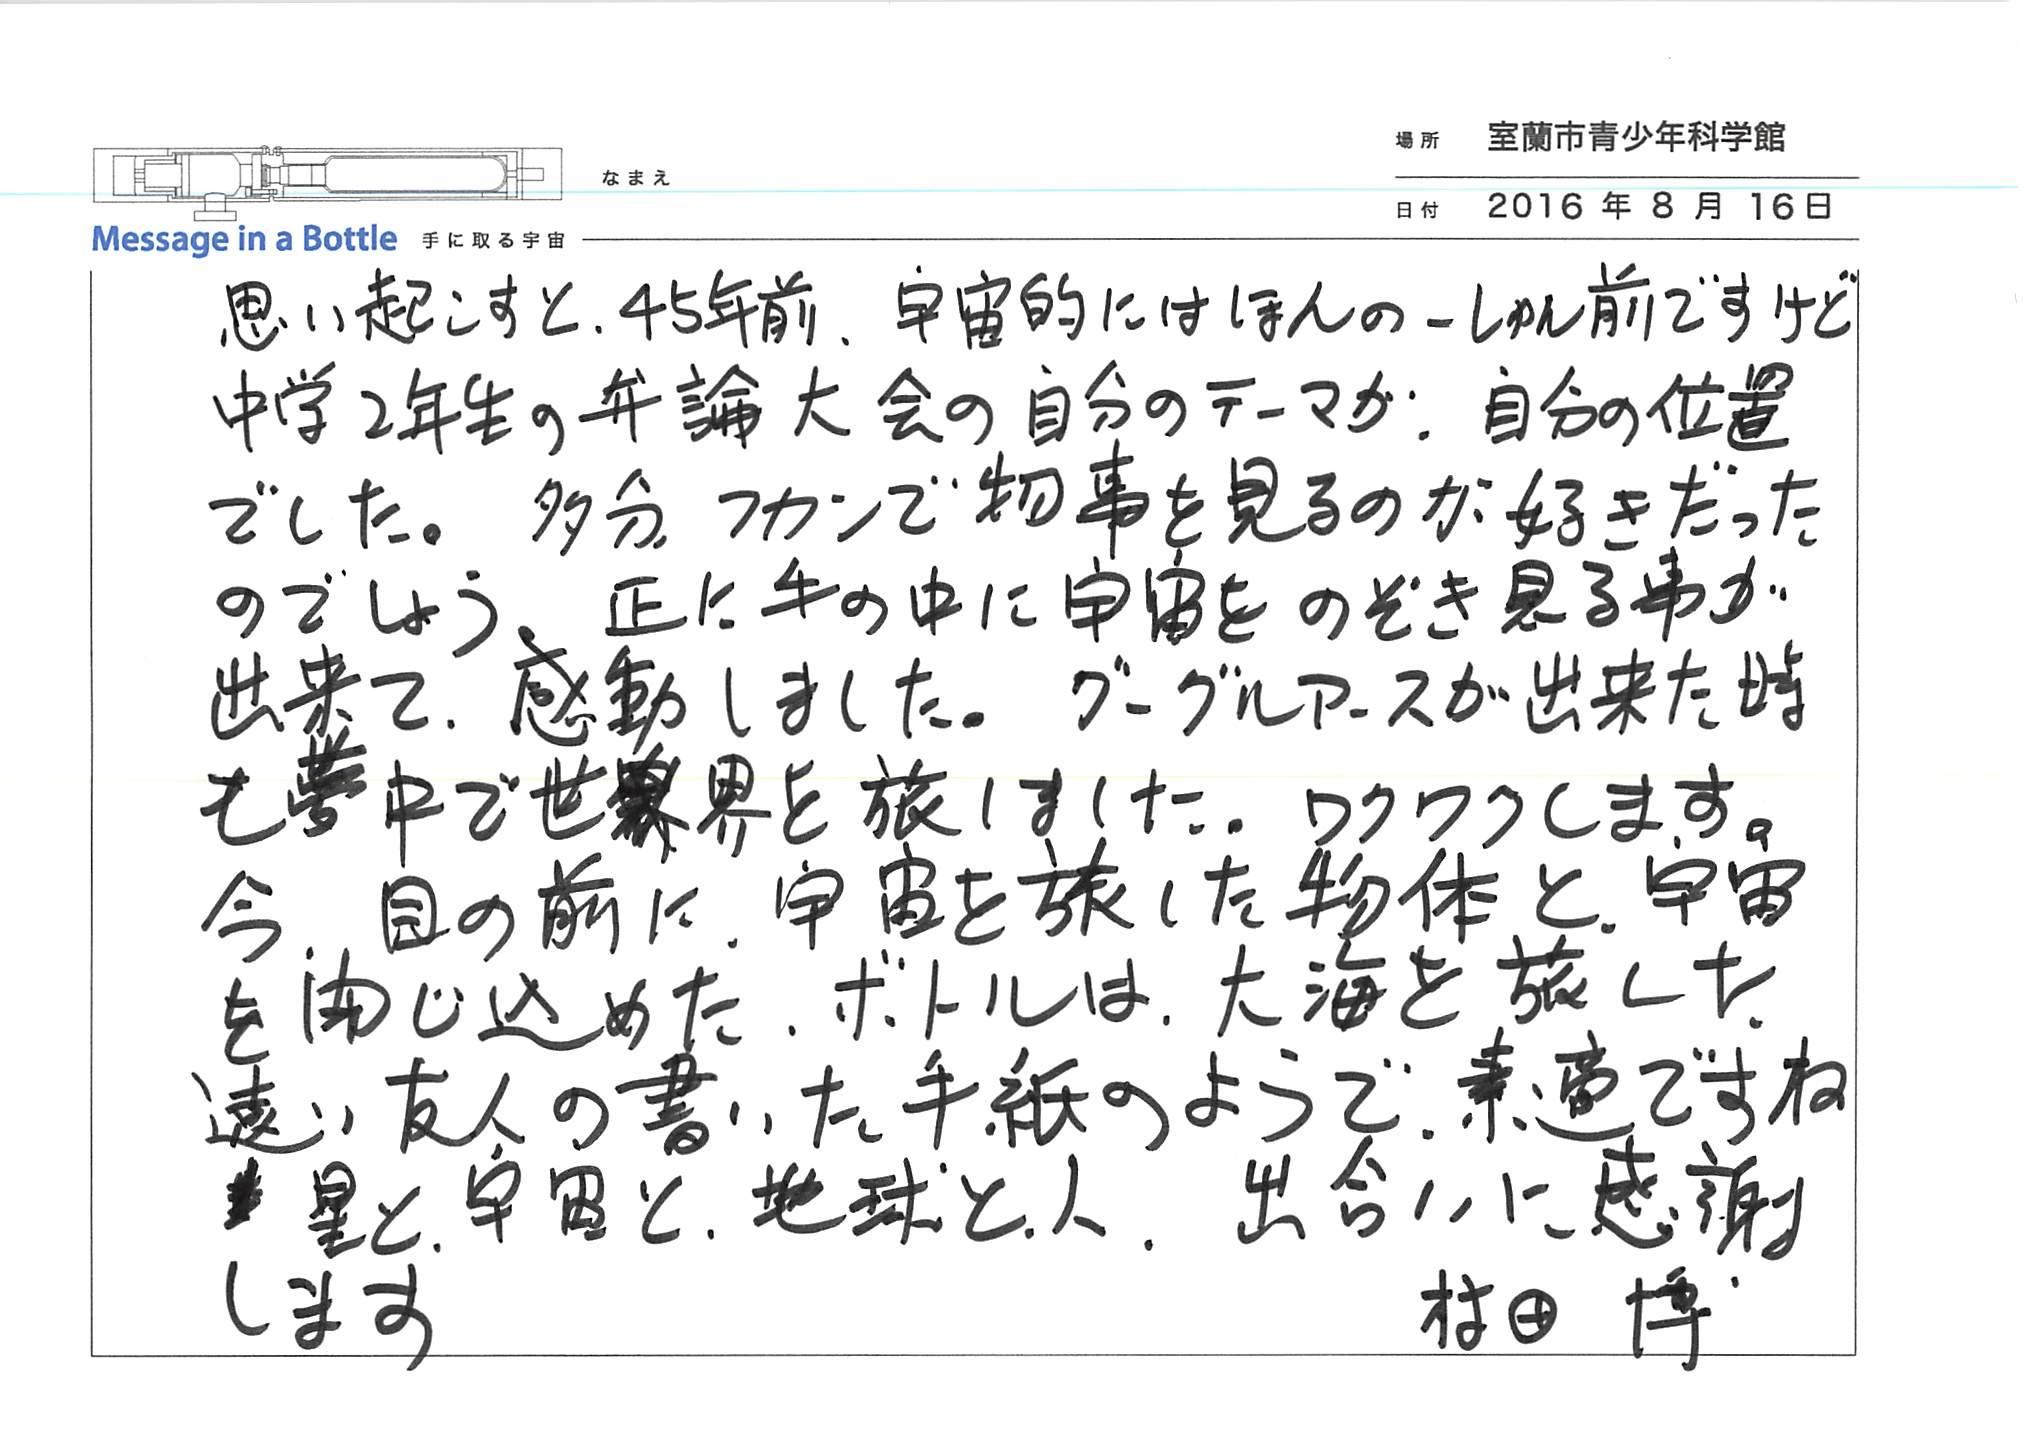 場所 室蘭市青少年科学館
なまえ
日付 2016 年 8 月 16日
Message in a Bottle 手に取る宇宙
思い起こすと、45年前、宇宙的にはほんの一しゅん前ですけど
中学2年生の弁論大会の自分のテーマが、自分の位置
でした。 多分、フカンで物事を見るのが好きだった
のでしょう、正に手の中に宇宙をのぞき見る事が
出来て、感動しました。 グーグルアースが出来た時
も夢中で世界を旅しました。ワクワクします。
今、目の前に、宇宙を旅した物体と、宇宙
を閉じ込めた、ボトルは、大海を旅した、
遠い友人の書いた手紙のようで、素適ですね
星と、宇宙と、地球と、人、 出合いに感謝
します 村田 博